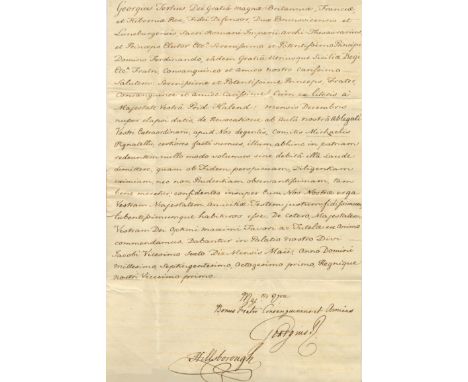 Georgius Tertius Dei Gratiâ magnæ Britanniæ, Franciæ
et Hiberniæ Rex, Fidei Defensor, Dux Brunsvicensis et
Luneburgensis, Sacri Romani Imperii archi Thesaurarius
et Princeps Elector Etc. Serenissimo et Potentissimo Principi
Domino Ferdinando, eâdem Gratiâ Utriusque Siciliæ Regi
Etc. Fratri, Consanguineo et amico nostro carissimo
Salutem Serenissime et Potentissime Princeps, Frater,
Consanguinee et amice carissime Cum ex literis a
Majestate Vestrâ Prid. Kalend: mensis Decembris
nuper elapsi datis de Revocatione ab aulâ nostrâ ablegati
Vestri Extraordinarii, apud Nos degentis, Comitis Michaelis
Pignatelli certiores facti sumus illum abhinc in patriam
redeuntem nullo modo volumus sine debitâ illâ laude
dimittere, quam ob Fidem perspectam, Diligentiam
eximiam nec non Prudentiam
bene meriti confidentes insuper eum Nos Nostræ erga
Vestram Majestatem amicitiæ Testem justum fidissimum
lubentissimumque habituros esse. De cetero Majestatem
Vestram Dei Optimi maximi Favori ac Tutelæ ex animo
commendamus Dabantur in Palatio nostro Divi
Jacobi Vicesimo Sexto Die Mensis Maii, Anno Domini
millesimo Septingentesimo, Octogesimo primo Regnique
nostri Vicesimo primo.
Bonus Frater Consanguineus et Amicus
Georgius R
Hillsborough